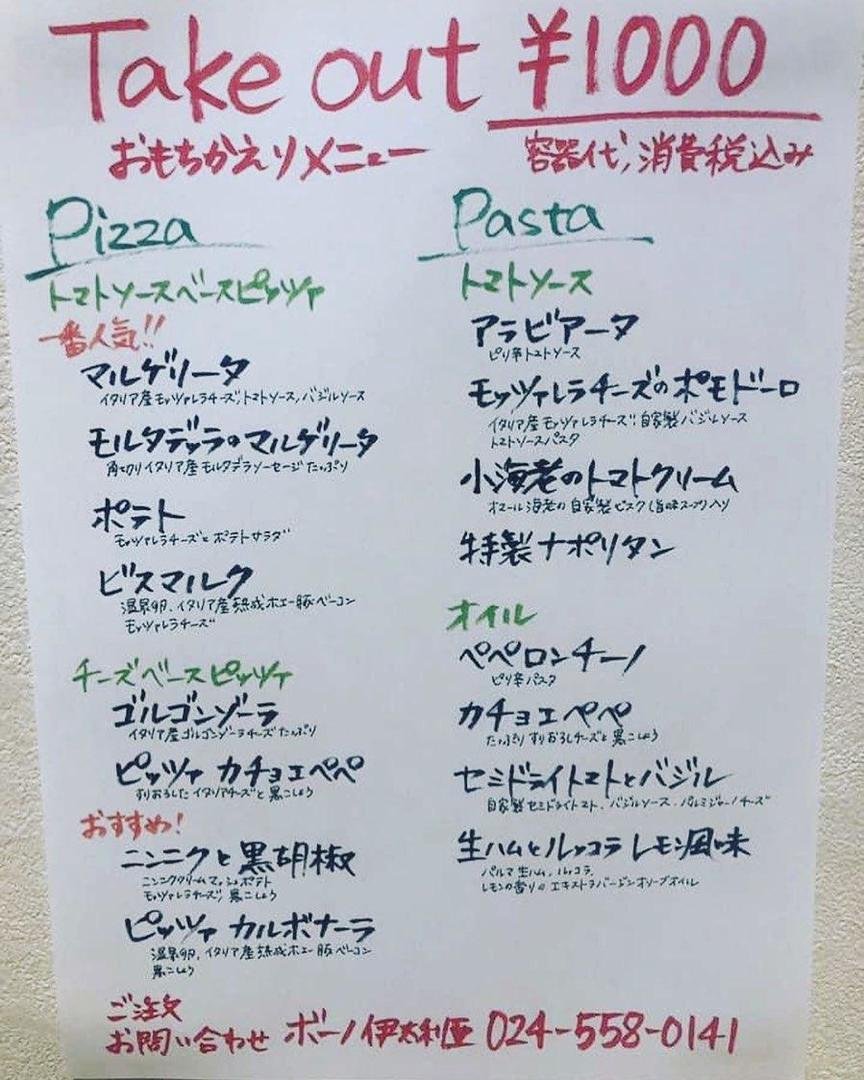 Take out ¥1000
おもちかえりメニュー
容器代, 消費税込み
Pizza
トマトソースベースピッツァ
一番人気!!
マルゲリータ
イタリア産モッツァレラチーズ, トマトソース, バジルソース
モルタデッラのマルゲリータ
角切りイタリア産モルタデラソーセージたっぷり
ポテト
モッツァレラチーズとポテトサラダ
ビスマルク
温泉卵, イタリア産熟成ホエー豚ベーコン
モッツァレラチーズ
チーズベースピッツァ
ゴルゴンゾーラ
イタリア産ゴルゴンゾーラチーズたっぷり
ピッツァ カチョエペペ
すりおろしたイタリアチーズと黒こしょう
おすすめ!
ニンニクと黒胡椒
ニンニククリームマッシュポテト
モッツァレラチーズ, 黒こしょう
ピッツァ カルボナーラ
温泉卵, イタリア産熟成ホエー豚ベーコン
黒こしょう
Pasta
トマトソース
アラビアータ
ピリ辛トマトソース
モッツァレラチーズのポモドーロ
イタリア産モッツァレラチーズ, 自家製バジルソース
トマトソースパスタ
小海老のトマトクリーム
オマール海老の自家製ビスク(旨味スープ)入り
特製ナポリタン
オイル
ペペロンチーノ
ピリ辛パスタ
カチョエペペ
たっぷりすりおろしチーズと黒こしょう
セミドライトマトとバジル
自家製セミドライトマト, バジルソース, パルミジャーノチーズ
生ハムとルッコラ レモン風味
パルマ生ハム, ルッコラ
レモンの香りのエキストラバージンオリーブオイル
ご注文
お問い合わせ ボーノ伊太利亜 024-558-0141